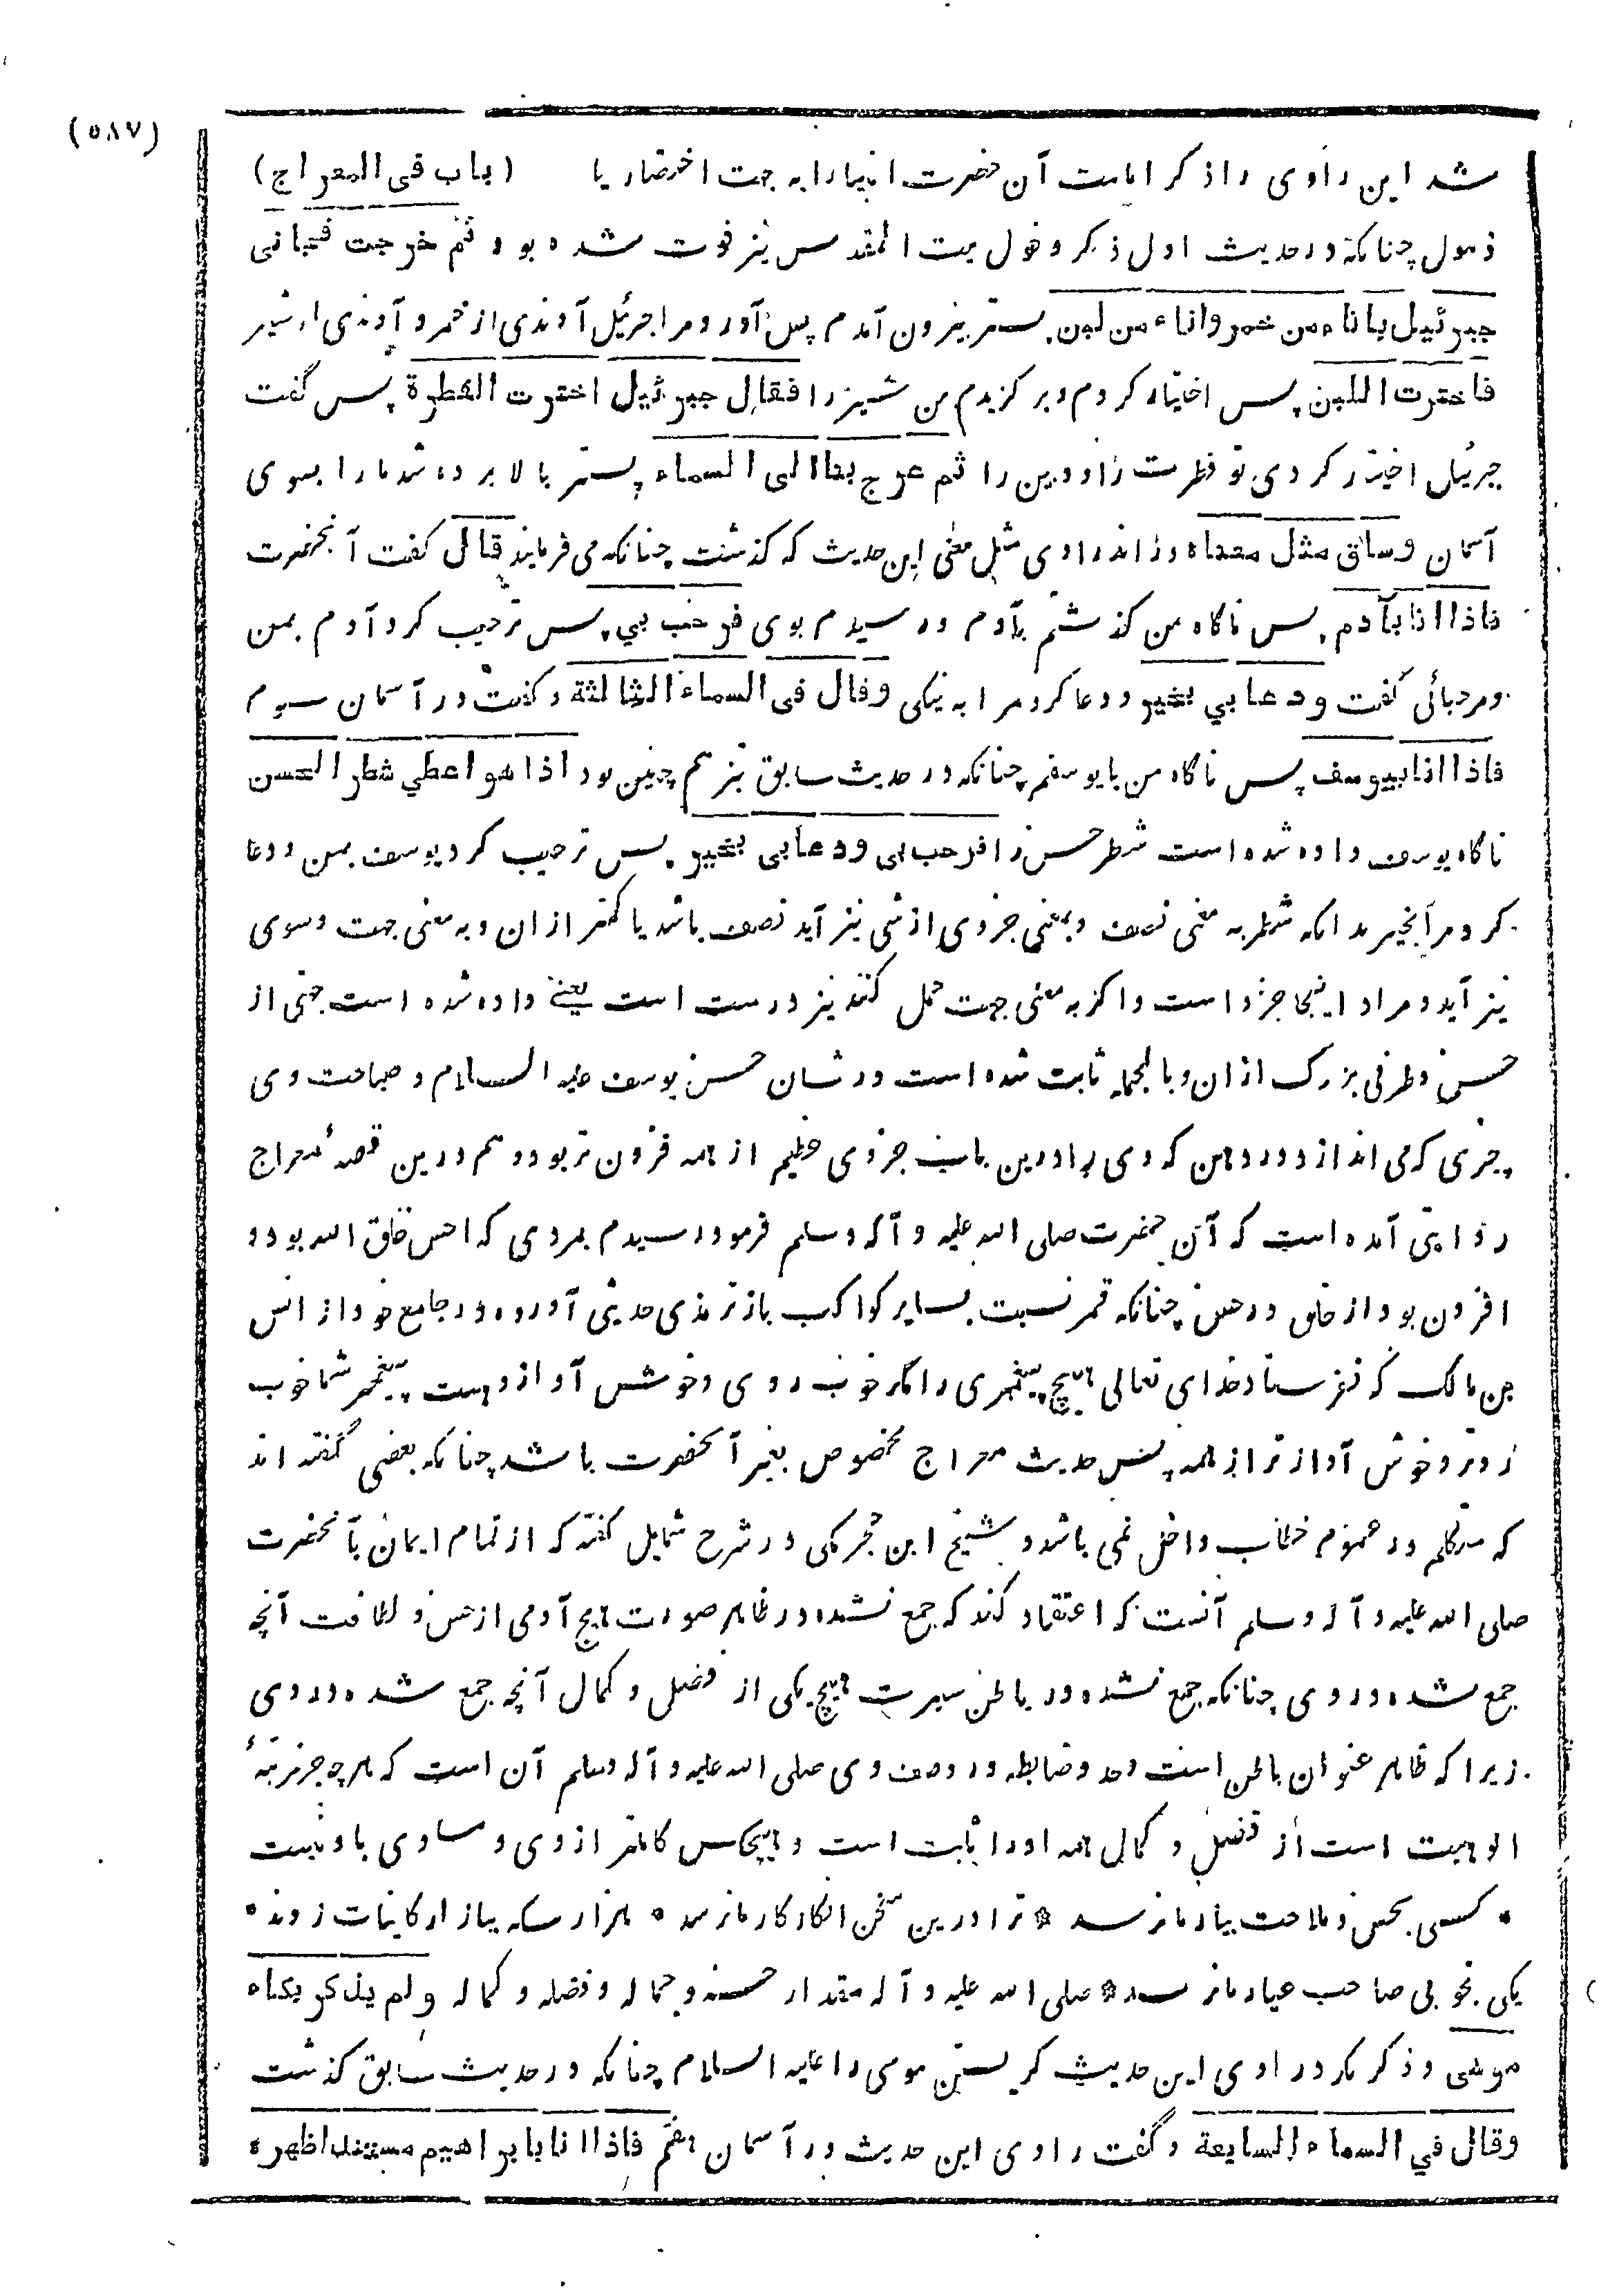 (٥٨٧)
شد این راوی را ذکر امامت آن حضرت انبیا را به جهت اختصار یا (باب فی المعراج)
ذهول چنانکه در حدیث اول ذکر دخول بیت المقدس نیز فوت شده بود ثم خرجت فجاءنی
جبرئیل باناء من خمر واناء من لبن پستر بیرون آمدم پس آورد مرا جبرئیل آوندی از خمر و آوندی از شیر
فاخترت اللبن پس اختیار کردم و برگزیدم من شیر را فقال جبرئیل اخترت الفطرة پس گفت
جبرئیل اختیار کردی تو فطرت را و دین را ثم عرج بنا الی السماء پستر بالا برده شد ما را بسوی
آسمان وساق مثل معناه و راند راوی مثل معنی این حدیث که گذشت چنانکه می فرماید قال گفت آنحضرت
فاذا انا بآدم پس ناگاه من گذشتم بآدم و رسیدم بوی فرحب بي پس ترحیب کرد آدم بمن
و مرحبائی گفت ودعا بي بخیر و دعا کرد مرا به نیکی وقال فی السماء الثالثة و گفت در آسمان سیوم
فاذا انا بیوسف پس ناگاه من با یوسفم چنانکه در حدیث سابق نیز هم چنین بود اذا هو اعطي شطر الحسن
ناگاه یوسف داده شده است شطر حسن را فرحب بی ودعا بی بخیر پس ترحیب کرد یوسف بمن و دعا
کرد مرا بخیر بدانکه شطر به معنی نصف و بمعنی جزوی از شی نیز آید نصف باشد یا کمتر از ان و به معنی جهت و سوی
نیز آید و مراد اینجا جزو است و اگر به معنی جهت حمل کنند نیز درست است یعنے داده شده است جهتی از
حسن و طرفی بزرک از ان و بالجمله ثابت شده است در شان حسن یوسف علیه السلام و صباحت وی
چیزی که می اندازد در دهن که وی را درین باب جزوی عظیم از همه فزون تر بود و هم درین قصهٔ معراج
روایتی آمده است که آن حضرت صلی الله علیه و آله وسلم فرمود رسیدم بمردی که احسن خلق الله بود و
افزون بود از خلق در حسن چنانکه قمر نسبت بسایر کواکب باز ترمذی حدیثی آورده در جامع خود از انس
بن مالک که نفرستاد خدای تعالی هیچ پیغمبری را مگر خوب روی و خوش آواز و هست پیغمبر شما خوب
روتر و خوش آواز تر از همه پس حدیث معراج مخصوص بغیر آنحضرت باشد چنانکه بعضی گفته اند
که متکلم در عموم خطاب داخل نمی باشد و شیخ ابن حجر مکی در شرح شمایل گفته که از تمام ایمان بآنحضرت
صلی الله علیه و آله وسلم آنست که اعتقاد کند که جمع نشده در ظاهر صورت هیچ آدمی از حسن و لطافت آنچه
جمع شده در وی چنانکه جمع نشده در باطن سیرت هیچ یکی از فضل و کمال آنچه جمع شده در وی
زیرا که ظاهر عنوان باطن است و حد و ضابطه در وصف وی صلی الله علیه و آله وسلم آن است که هر چه جز مرتبهٔ
الوهیت است از فضل و کمال همه او را ثابت است و هیچکس کاملتر از وی و مساوی با و نیست
• کسی بحسن و ملاحت بیار ما نرسد * ترا درین سخن انکار کار ما نرسد • هزار سکه ببازار کاینات زوند •
یکی بخوبی صاحب عیار ما نرسد * صلی الله علیه و آله مقدار حسنه و جماله و فضله و کماله ولم یذکر بکاء
موسی و ذکر نکرد راوی این حدیث گریستن موسی را علیه السلام چنانکه در حدیث سابق گذشت
وقال في السماء السابعة و گفت راوی این حدیث در آسمان هفتم فاذا انا بابراهیم مسندا ظهره